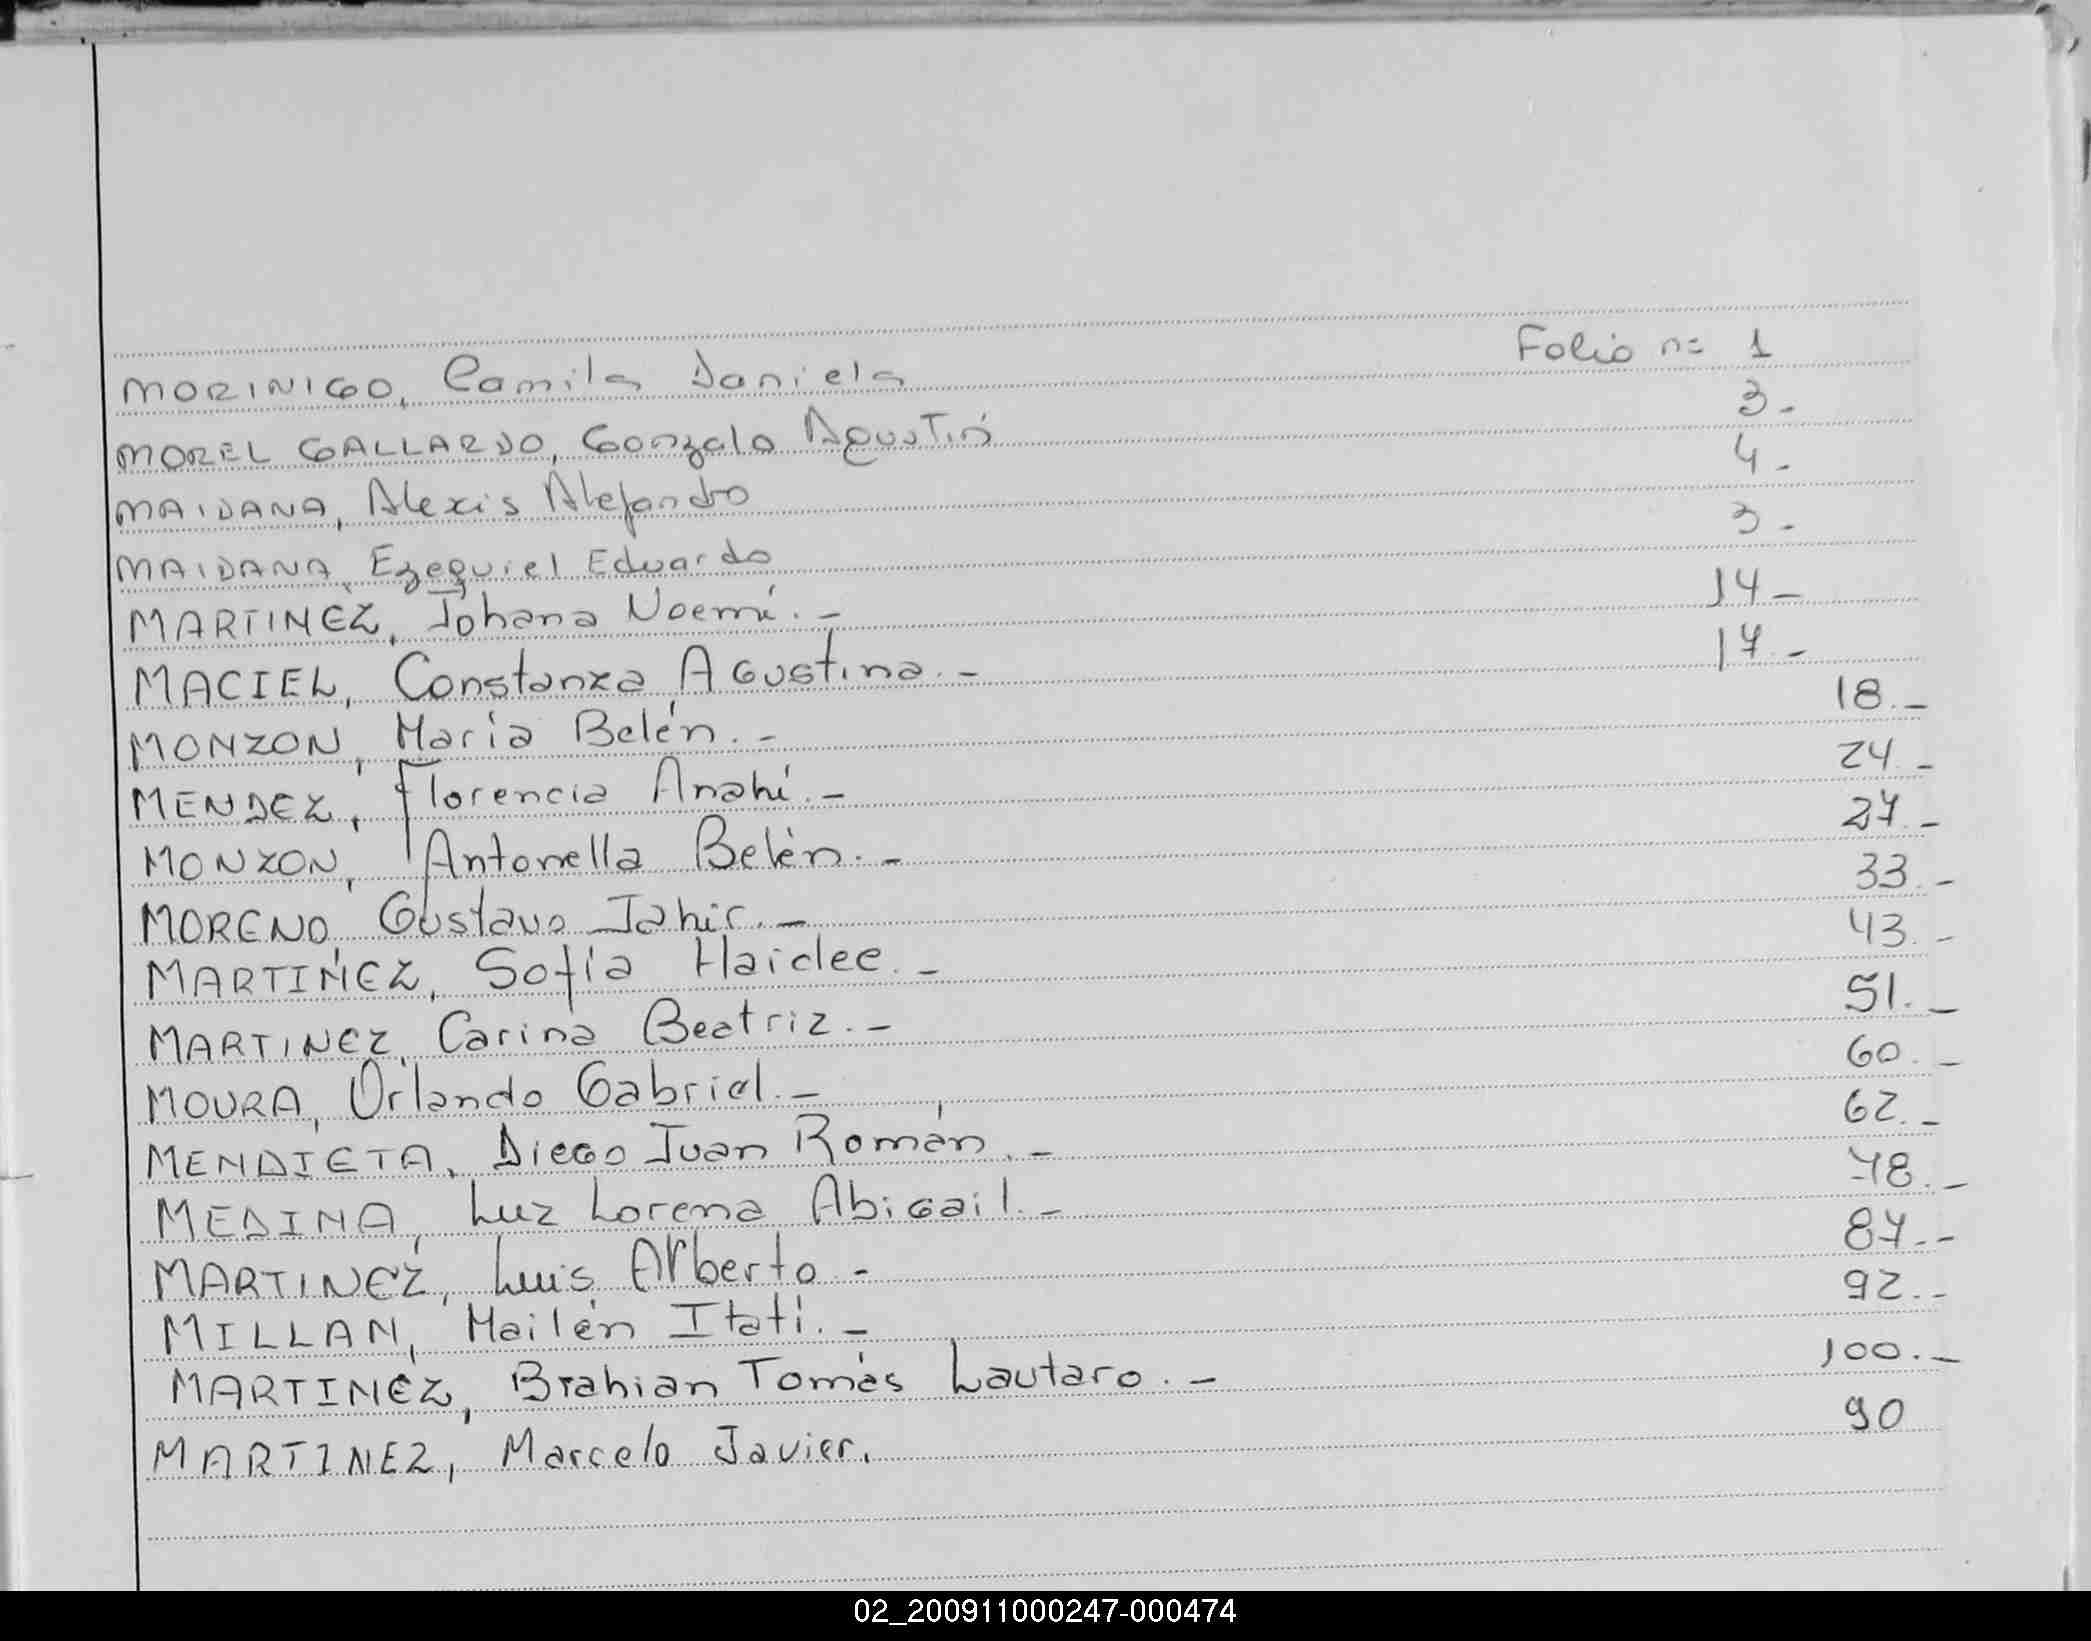 MORINIGO, Camila Daniela Folio nº 1
MOREL GALLARDO, Gonzalo Agustín 3.-
MAIDANA, Alexis Alejandro 4.-
MAIDANA, Ezequiel Eduardo 3.-
MARTINEZ, Johana Noemí.- 14-
MACIEL, Constanza Agustina.- 17.-
MONZON, María Belén.- 18.-
MENDEZ, Florencia Anahí.- 24.-
MONZON, Antonella Belén.- 27.-
MORENO, Gustavo Jahir.- 33.-
MARTINEZ, Sofía Haidee.- 43.-
MARTINEZ, Carina Beatriz.- 51.-
MOURA, Orlando Gabriel.- 60.-
MENDIETA, Diego Juan Román.- 62.-
MEDINA, Luz Lorena Abigail.- 78.-
MARTINEZ, Luis Alberto.- 87.-
MILLAN, Mailén Itatí.- 92.-
MARTINEZ, Brahian Tomás Lautaro.- 100.-
MARTINEZ, Marcelo Javier. 90
02_200911000247-000474